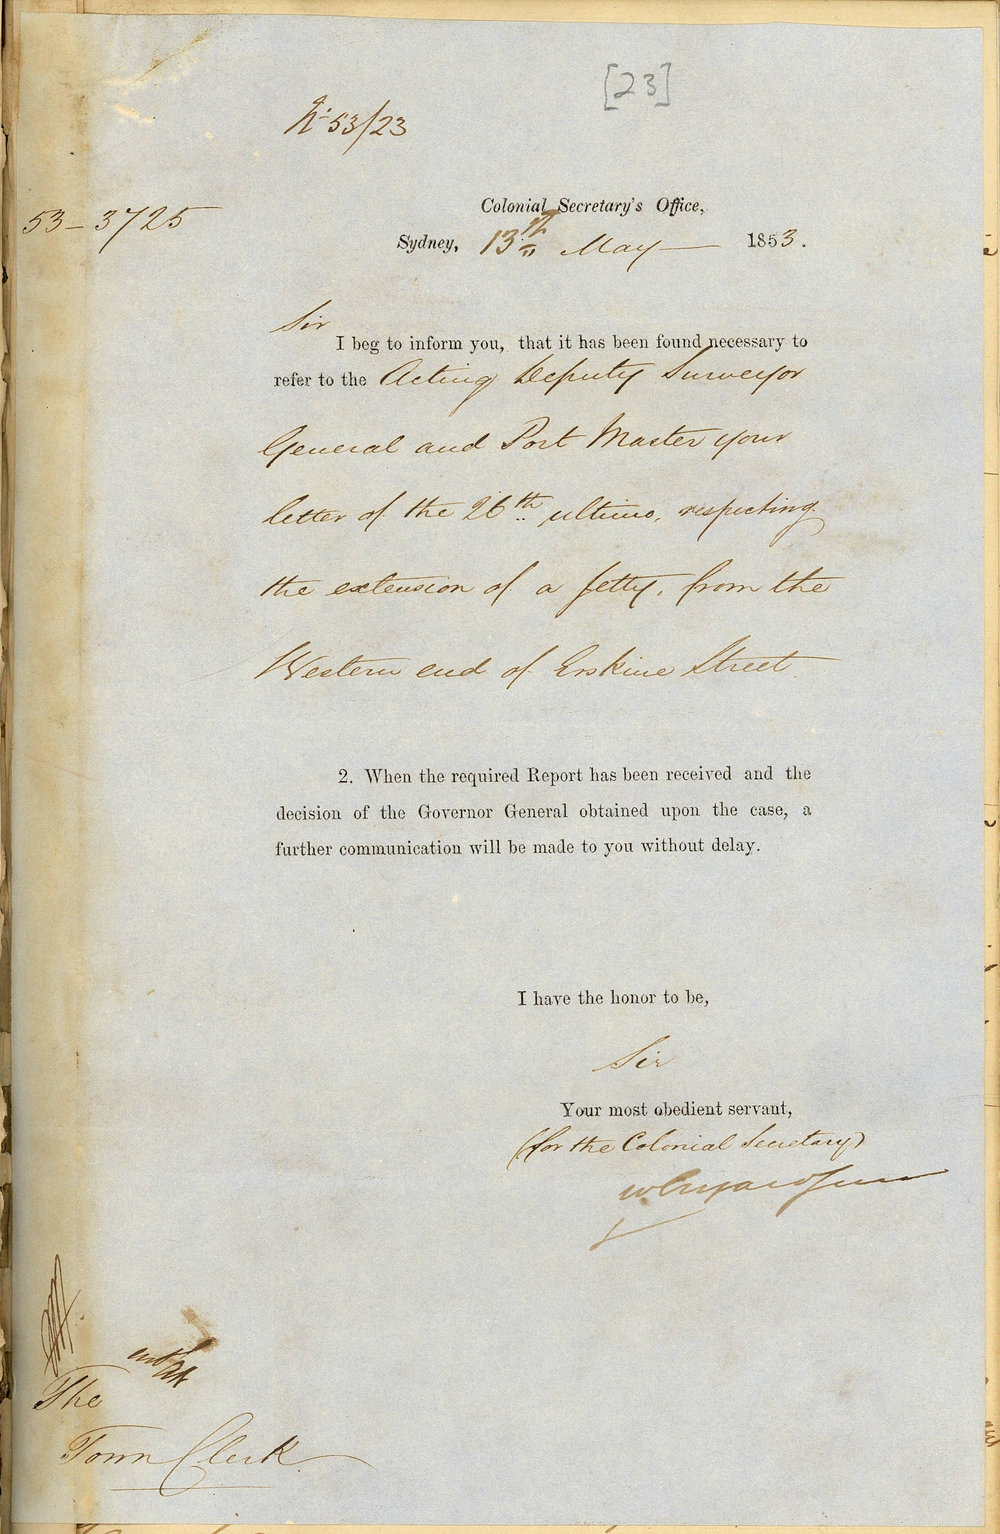 [23]
No 53/23
53-3725
Colonial Secretary's Office,
Sydney, 13th May 1853.
Sir
I beg to inform you, that it has been found necessary to
refer to the Acting Deputy Surveyor
General and Port Master your
letter of the 26th ultimo, respecting
the extension of a Jetty, from the
Western end of Erskine Street
2. When the required Report has been received and the
decision of the Governor General obtained upon the case, a
further communication will be made to you without delay.
I have the honor to be,
Sir
Your most obedient servant,
(for the Colonial Secretary)
The
Town Clerk